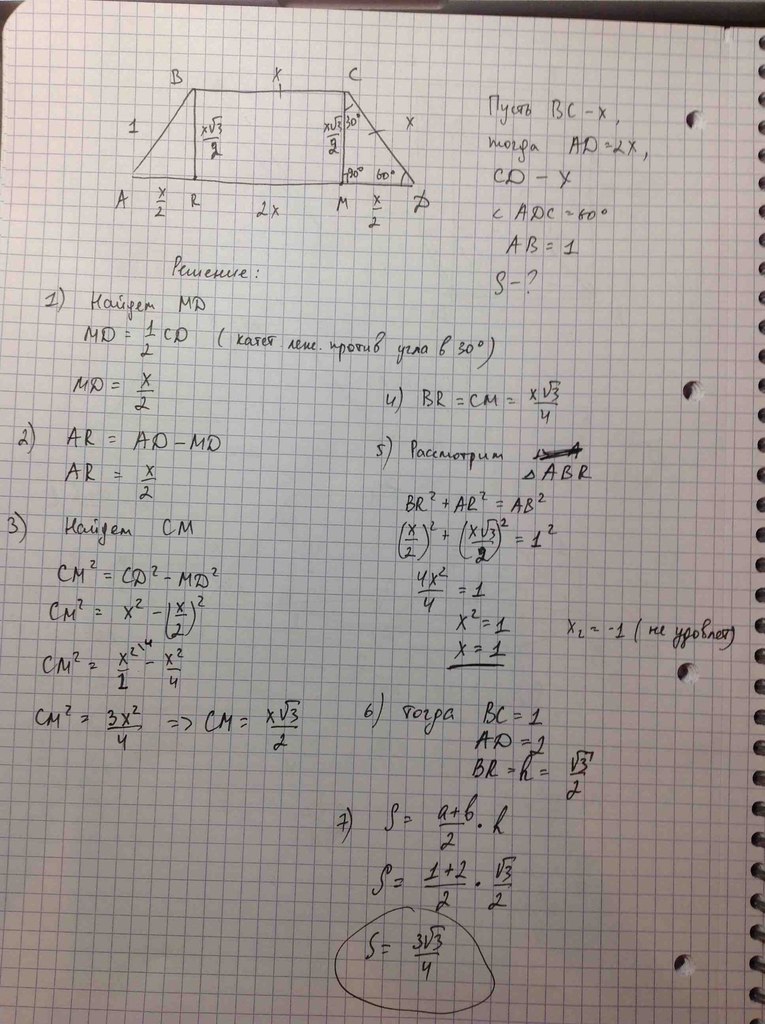 B x C
1 x√3/2 x√3/2 30° x
90° 60°
A x/2 R 2x M x/2 D
Пусть BC – x,
тогда AD = 2x,
CD – x
< ADC = 60°
AB = 1
S – ?
Решение:
1) Найдем MD
MD = 1/2 CD (катет леж. против угла в 30°)
MD = x/2
2) AR = AD – MD
AR = x/2
3) Найдем CM
CM² = CD² – MD²
CM² = x² – (x/2)²
CM² = x²\4/1 – x²/4
CM² = 3x²/4 => CM = x√3/2
4) BR = CM = x√3/4
5) Рассмотрим
△ ABR
BR² + AR² = AB²
(x/2)² + (x√3/2)² = 1²
4x²/4 = 1
x² = 1
x = 1
x₂ = -1 (не удовлет)
6) тогда BC = 1
AD = 2
BR = h = √3/2
7) S = a+b/2 · h
S = 1+2/2 · √3/2
S = 3√3/4